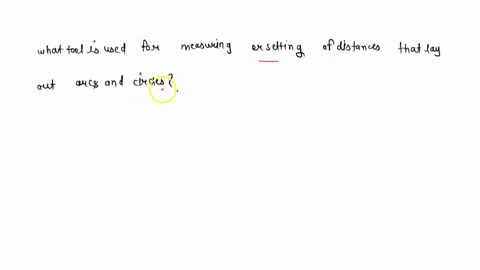 what tool is used for measuring or setting of distances that lay
out arcs and circles?